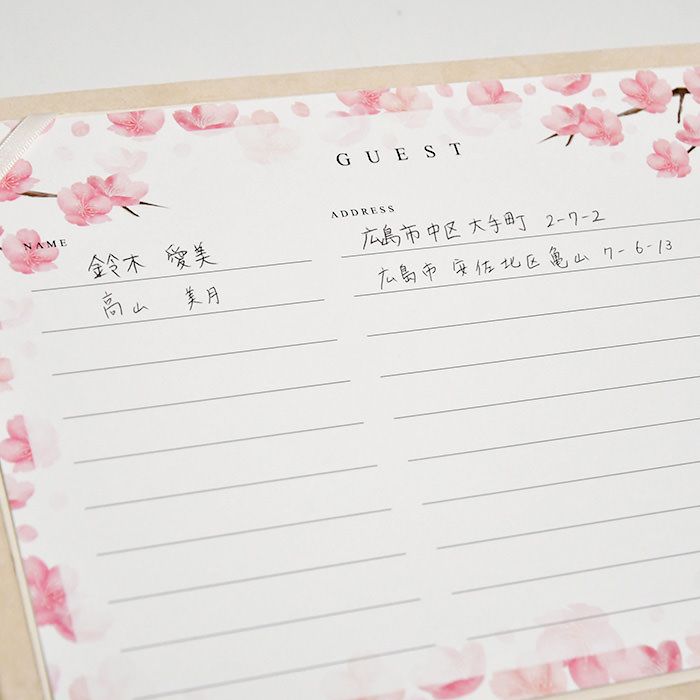 GUEST
NAME
ADDRESS
鈴木 愛美
広島市中区大手町 2-7-2
高山 美月
広島市 安佐北区亀山 7-6-13